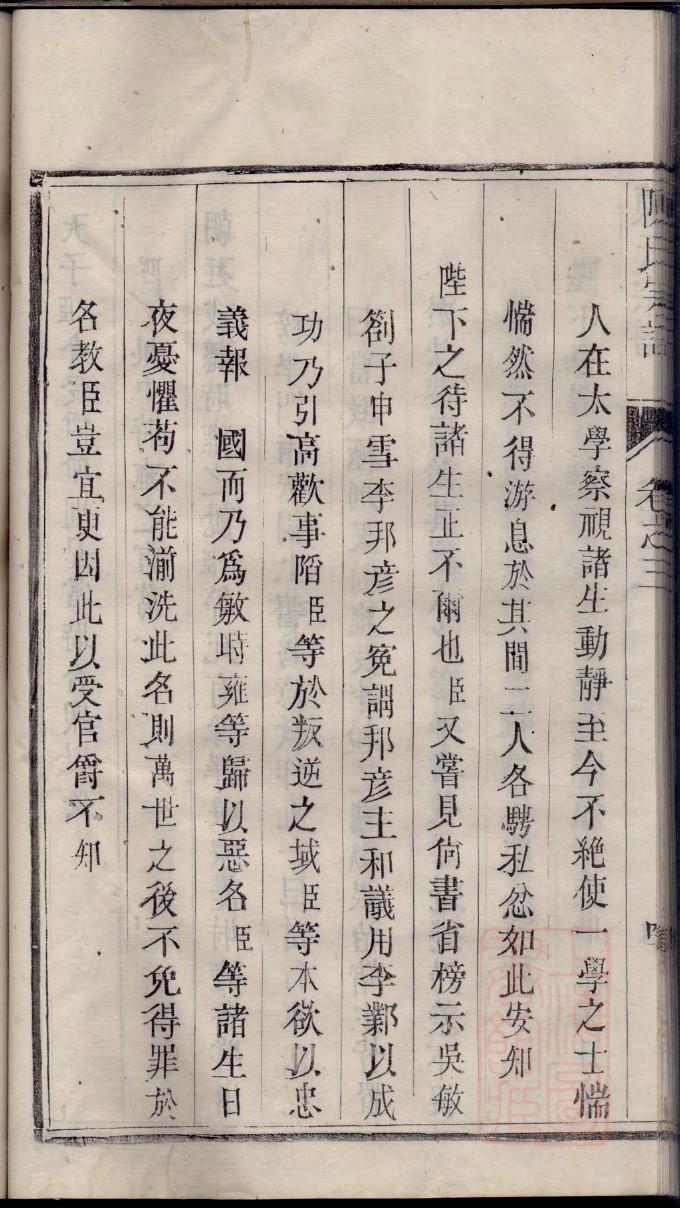 陳氏宗譜 卷之三
人在太學察視諸生動靜至今不絶使一學之士惴
惴然不得游息於其間二人各騁私忿如此安知
陛下之待諸生正不爾也臣又嘗見尙書省榜示吳敏
劄子申雪李邦彦之寃謂邦彦主和議用李鄴以成
功乃引高歡事陷臣等於叛逆之域臣等本欲以忠
義報 國而乃爲敏時雍等歸以惡名臣等諸生日
夜憂懼茍不能湔洗此名則萬世之後不免得罪於
名教臣豈宜更因此以受官爵不知